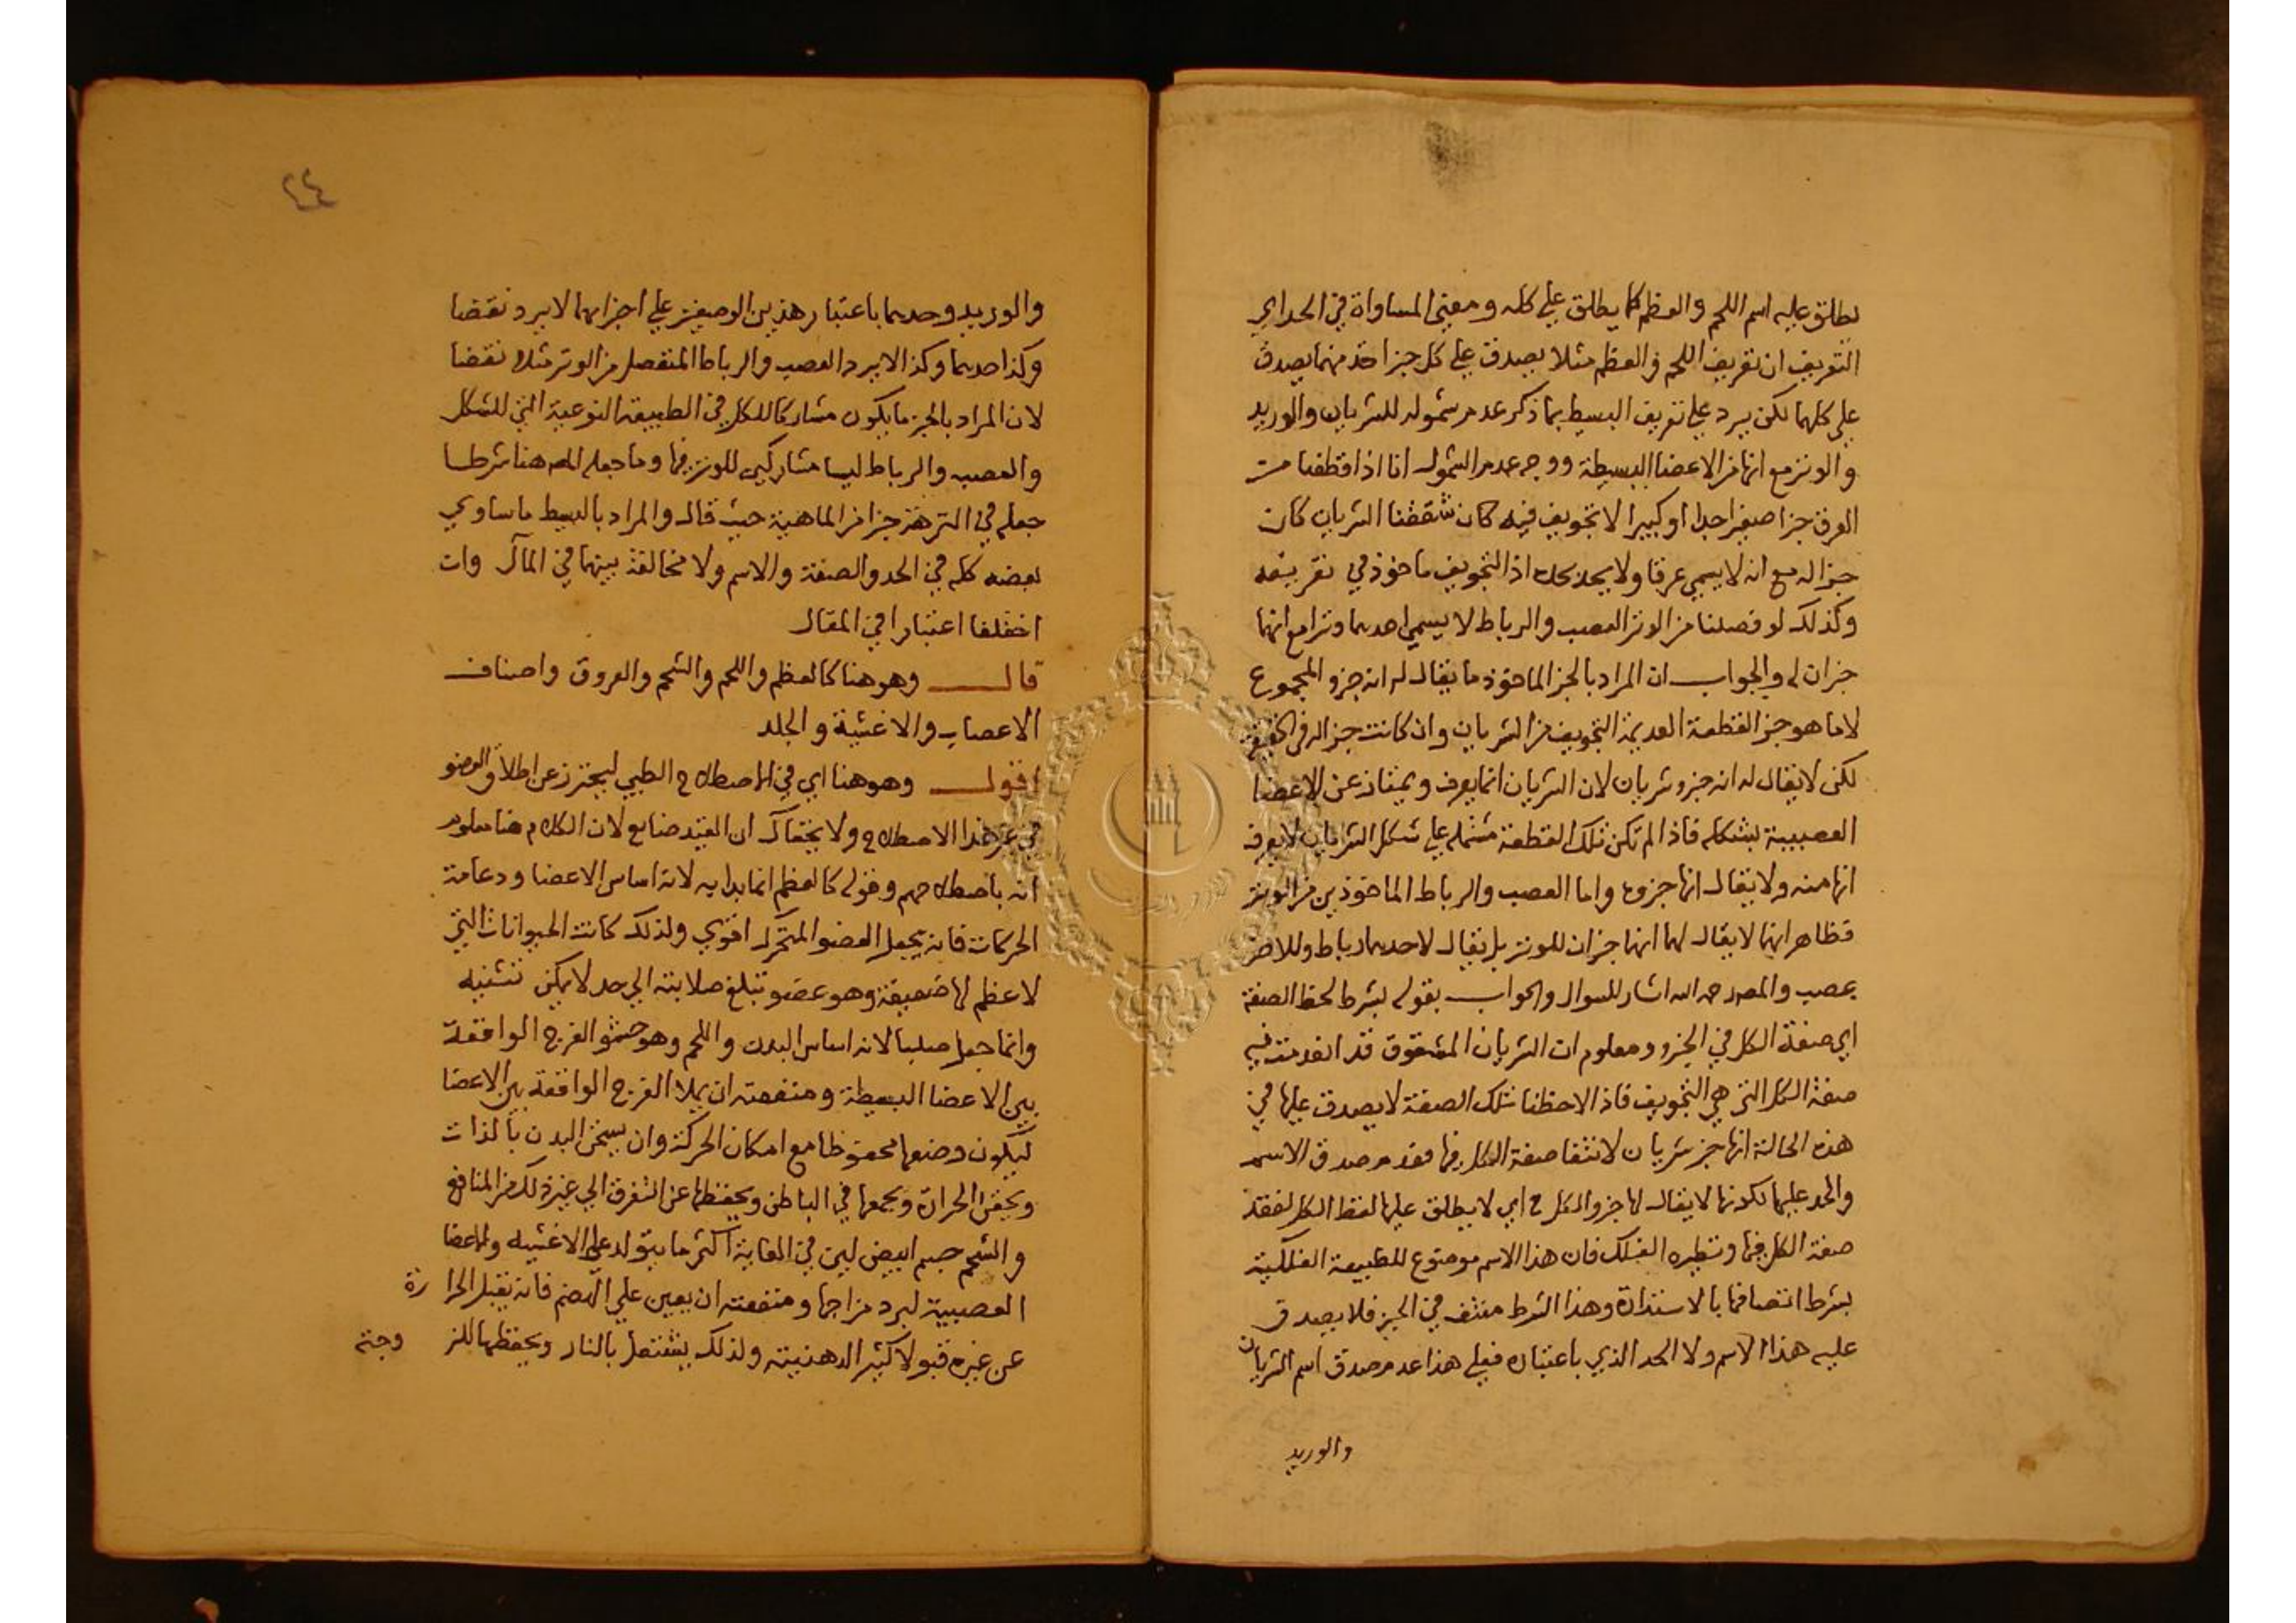 يطلق عليه اسم اللحم والعظم كما يطلق علي كله ومعني المساواة في الحد اي
التعريف ان تعريف اللحم والعظم مثلا يصدق علي كل جز اخذ منهما يصدق
علي كلهما لكن يرد علي تعريف البسيط بما ذكر عدم شموله للشريان والوريد
والوتر مع انها من الاعضا البسيطة ووجه عدم الشمول انا اذا قطعنا من
العرق جزا صغيرا جدا او كبيرا لا تجويف فيه كان شققنا الشريان كان
جزا له مع انه لا يسمي عرقا ولا يحد بحده اذ التجويف ماخوذ في تعريفه
وكذلك لو فصلنا من الوتر العصب والرباط لا يسمي احدهما وترا مع انهما
جزان له والجواب ان المراد بالجز الماخوذ ما يقال له انه جزو المجموع
لا ما هو جز القطعة العديمة التجويف من الشريان وان كانت جزا له في الحقيقة
لكن لا يقال له انه جزو شريان لان الشريان انما يعرف ويمتاز عن الاعضا
العصبية بشكله فاذا لم تكن تلك القطعة مشتمله علي شكل الشريان لا يعرف
انها منه ولا يقال انها جزوه واما العصب والرباط الماخوذين من الوتر
فظاهر انهما لا يقال لهما انهما جزان للوتر بل يقال لاحدهما رباط وللاخر
عصب والمص رحمه الله اشار للسوال والجواب بقوله بشرط لحظ الصفة
اي صفة الكل في الجزو ومعلوم ان الشريان المشقوق قد انعدمت فيه
صفة الكل التي هي التجويف فاذا لاحظنا تلك الصفة لا يصدق عليها في
هذه الحالة انها جز شريان لانتفا صفة الكل فيها فعدم صدق الاسم
والحد عليها لكونها لا يقال لها جزو الكل ح اي لا يطلق عليها لفظ الكل لفقد
صفة الكل فيها ونظيره الفلك فان هذا الاسم موضوع للطبيعة الفلكية
بشرط اتصافها بالاستدارة وهذا الشرط منتف في الجز فلا يصدق
عليه هذا الاسم ولا الحد الذي باعتباره فعلي هذا عدم صدق اسم الشريان
والوريد
٤٤
والوريد وحدهما باعتبار هذين الوصفين علي اجزائهما لا يرد نقضا
وكذا حدهما وكذا لا يرد العصب والرباط المنفصل من الوتر مثلا نقضا
لان المراد بالجز ما يكون مشاركا للكل في الطبيعة النوعية التي للشكل
والعصب والرباط ليسا مشاركين للوتر فيها وما جعله المص هنا شرطا
جعله في النزهة جزا من الماهية حيث قال والمراد بالبسيط ما ساوي
بعضه كله في الحد والصفة والاسم ولا مخالفة بينهما في المآل وان
اختلفا اعتبارا في المقال
قال وهو هنا كالعظم واللحم والشحم والعروق واصناف
الاعصاب والاغشية والجلد
اقول وهو هنا اي في الاصطلاح الطبي ليحترز عن اطلاق العضو
في غير هذا الاصطلاح ولا يخفاك ان القيد ضايع لان الكلام هنا معلوم
انه باصطلاحهم وقوله كالعظم انما بدا به لانه اساس الاعضا ودعامة
الحركات فانه يجعل العضو المتحرك اقوي ولذلك كانت الحيوانات التي
لا عظم لها ضعيفة وهو عضو تبلغ صلابته الي حد لا يمكن تثنيه
وانما جعل صلبا لانه اساس البدن واللحم وهو حشو الفرج الواقعة
بين الاعضا البسيطة ومنفعته ان يملا الفرج الواقعة بين الاعضا
ليكون وضعها محفوظا مع امكان الحركة وان يسخن البدن بالذات
ويحقن الحرارة ويجمعها في الباطن ويحفظها عن التفرق الي غير ذلك من المنافع
والشحم جسم ابيض لين في الغاية اكثر ما يتولد علي الاغشيه والاعضا
العصبية لبرد مزاجها ومنفعته ان يعين علي الهضم فانه يقبل الحرارة
عن غيره قبولا كثيرا لدهنيته ولذلك يشتعل بالنار ويحفظها للزوجته